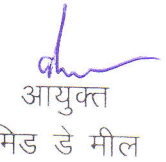 आयुक्त
मिड डे मील